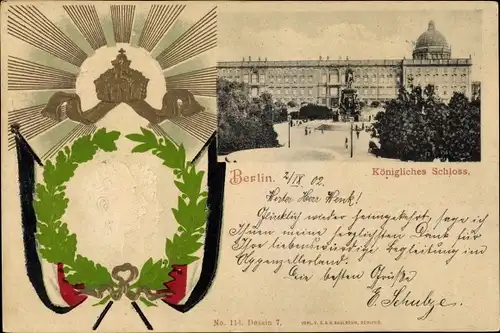 Königliches Schloss.
Berlin. 2/IX 02.
Werter Herr Wenk!
Glücklich wieder heimgekehrt, sage ich
Ihnen meine herzlichsten Dank für
Ihre liebenswürdige Begleitung im
Appenzellerland.
Die besten Grüße
E. Schulze.
No. 114. Dessin 7.